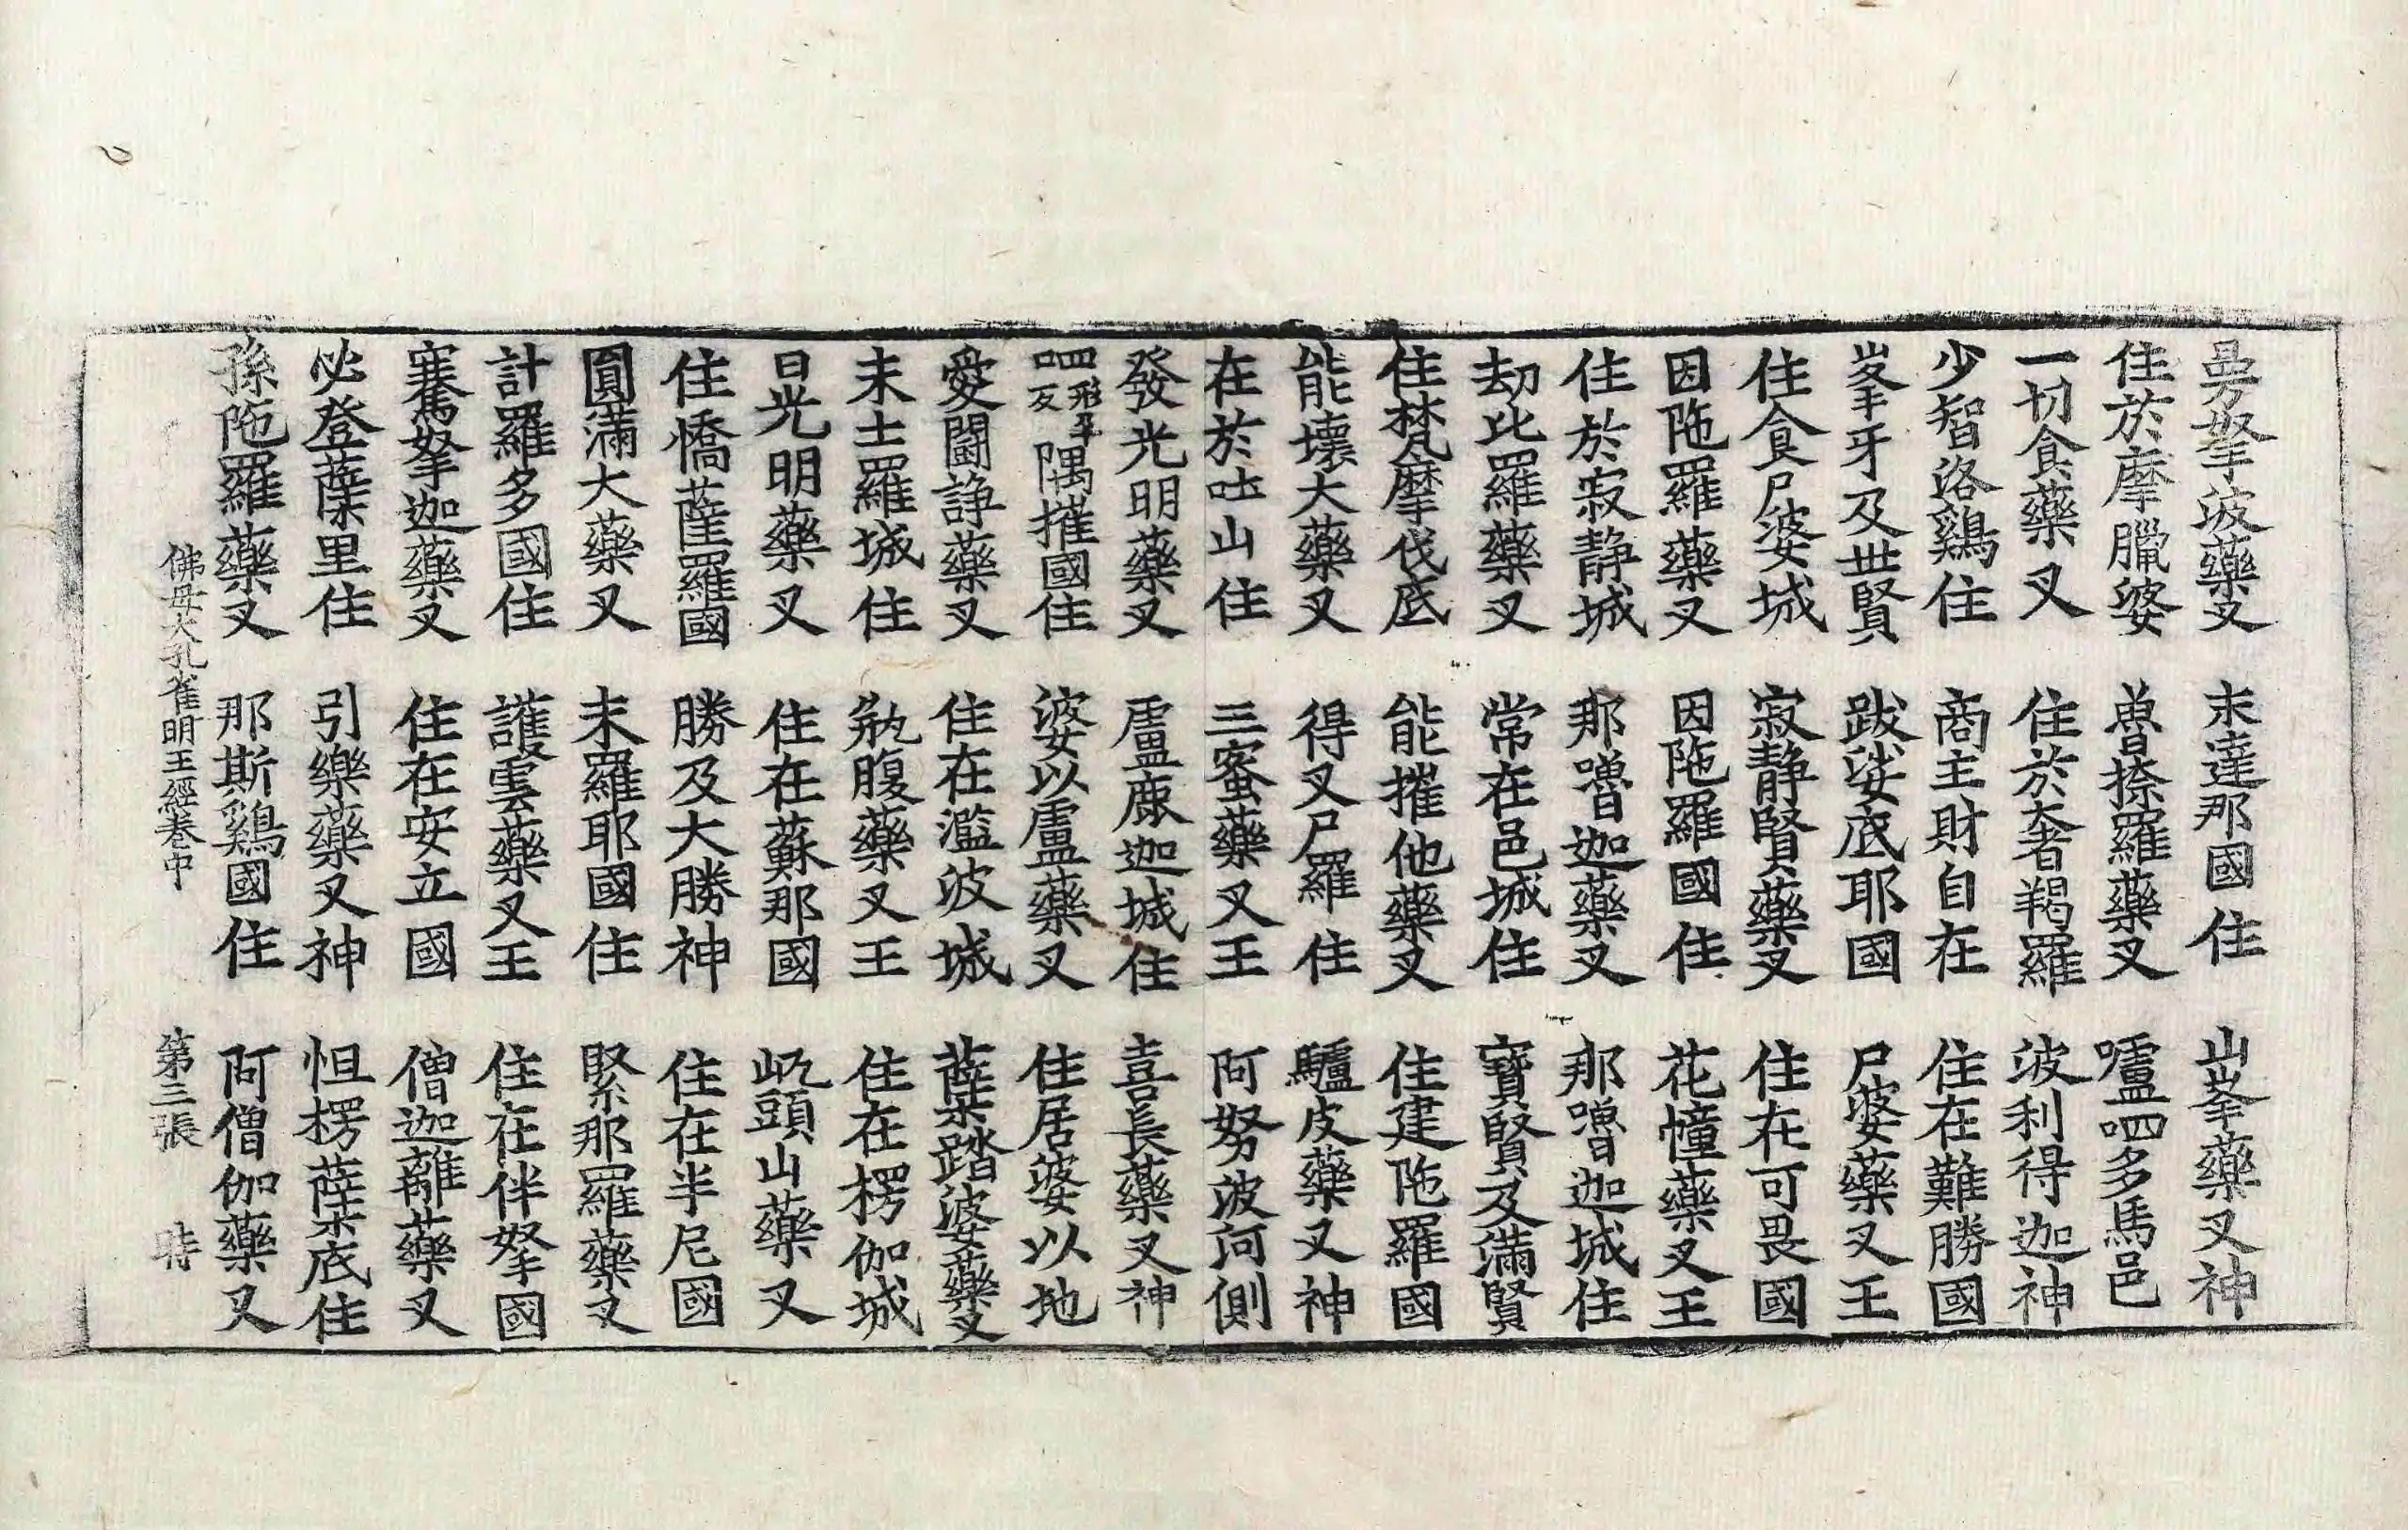 曼拏波藥叉　末達那國住　山峯藥叉神
住於摩臘婆　魯捺羅藥叉　嚧呬多馬邑
一切食藥叉　住於奢羯羅　波利得迦神
少智洛鷄住　商主財自在　住在難勝國
峯牙及世賢　跋娑底耶國　尸婆藥叉王
住食尸婆城　寂靜賢藥叉　住在可畏國
因陁羅藥叉　因陁羅國住　花幢藥叉王
住於寂靜城　那嚕迦藥叉　那嚕迦城住
劫比羅藥叉　常在邑城住　寶賢及滿賢
住梵摩伐底　能摧他藥叉　住建陁羅國
能壞大藥叉　得叉尸羅住　驢皮藥叉神
在於吐山住　三蜜藥叉王　阿努波河側
發光明藥叉　盧鹿迦城住　喜長藥叉神
呬形孕反隅摧國住　婆以盧藥叉　住居婆以地
愛鬪諍藥叉　住在濫波城　蘖踏婆藥叉
末土羅城住　瓶腹藥叉王　住在楞伽城
日光明藥叉　住在蘇那國　屼頭山藥叉
住憍薩羅國　勝及大勝神　住在半尼國
圓滿大藥叉　末羅耶國住　緊那羅藥叉
計羅多國住　護雲藥叉王　住在伴拏國
騫拏迦藥叉　住在安立國　僧迦離藥叉
必登蘖里住　引樂藥叉神　怛楞蘖底住
孫陁羅藥叉　那斯鷄國住　阿僧伽藥叉
佛母大孔雀明王經卷中　第三張　時